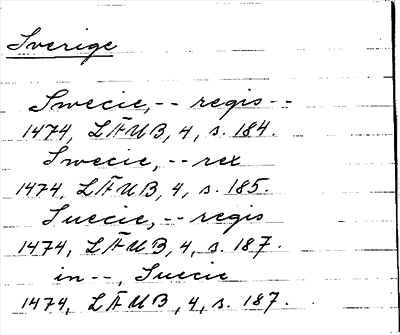 Sverige
Swecie, -- regis --
1474, LÄUB, 4, s. 184.
Swecie, -- rex
1474, LÄUB, 4, s. 185.
Suecie, -- regis
1474, LÄUB, 4, s. 187.
in --, Suecie
1474, LÄUB, 4, s. 187.